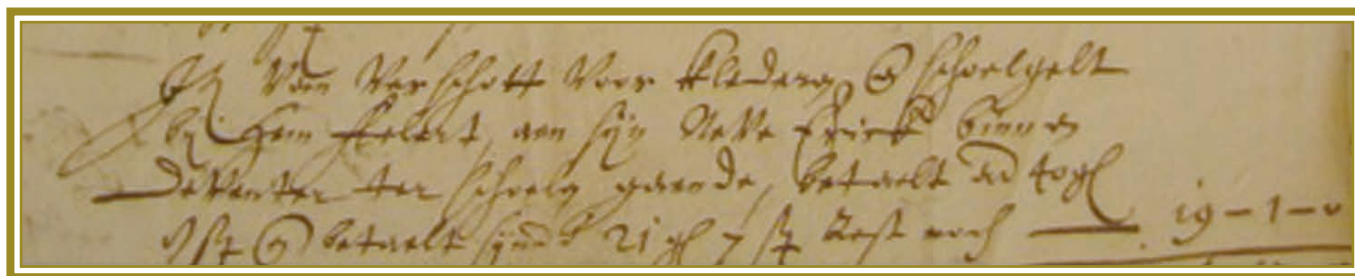 Van Verschott Voor kledern, & schoelgelt
bij hem Eelert, aen sijn Neve Erick binnen
Deventer ter scholen gaende, betaelt ad 40 gl
8 st & betaelt sijnde 21 gl 7 st Rest noch 19-1-0